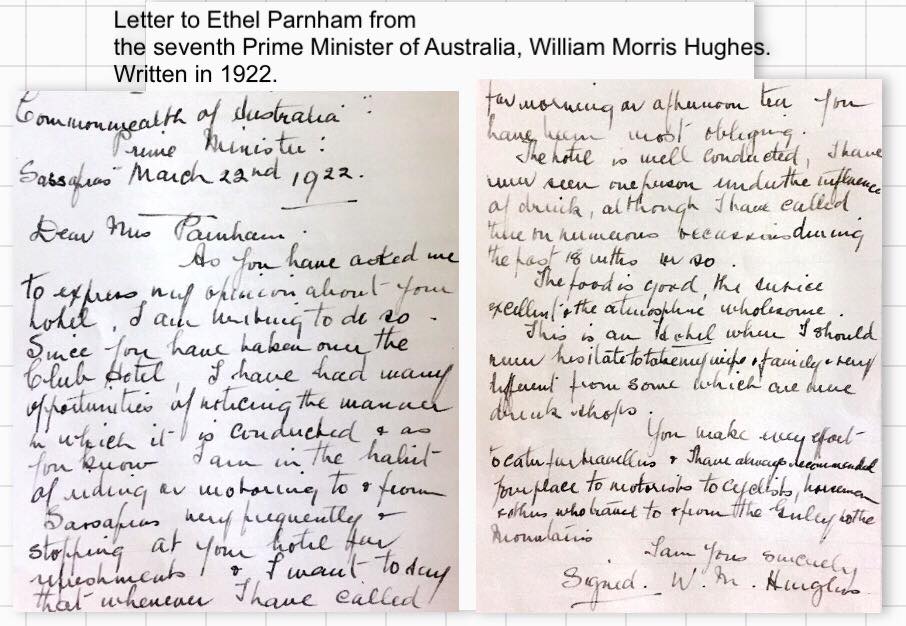 Letter to Ethel Parnham from
the seventh Prime Minister of Australia, William Morris Hughes.
Written in 1922.
Commonwealth of Australia
Prime Minister:
Sassafras March 22nd 1922.
Dear Mrs Parnham.
As you have asked me
to express my opinion about your
hotel, I am writing to do so.
Since you have taken over the
Club Hotel, I have had many
opportunities of noticing the manner
in which it is conducted & as
you know I am in the habit
of riding or motoring to & from
Sassafras very frequently &
stopping at your hotel for
refreshments & I want to say
that whenever I have called
for morning or afternoon tea you
have been most obliging.
The hotel is well conducted, I have
never seen one person under the influence
of drink, although I have called
there on numerous occassions during
the past 18 mths or so.
The food is good, the service
excellent & the atmosphere wholesome.
This is an Hotel where I should
never hesitate to take my wife & family & very
different from some which are mere
drink shops.
You make every effort
to cater for travellers & I have always recommended
your place to motorists to cyclists, horseman
& others who travel to & from the Gully to the
Mountains
I am Yours sincerely
Signed. W. M. Hughes